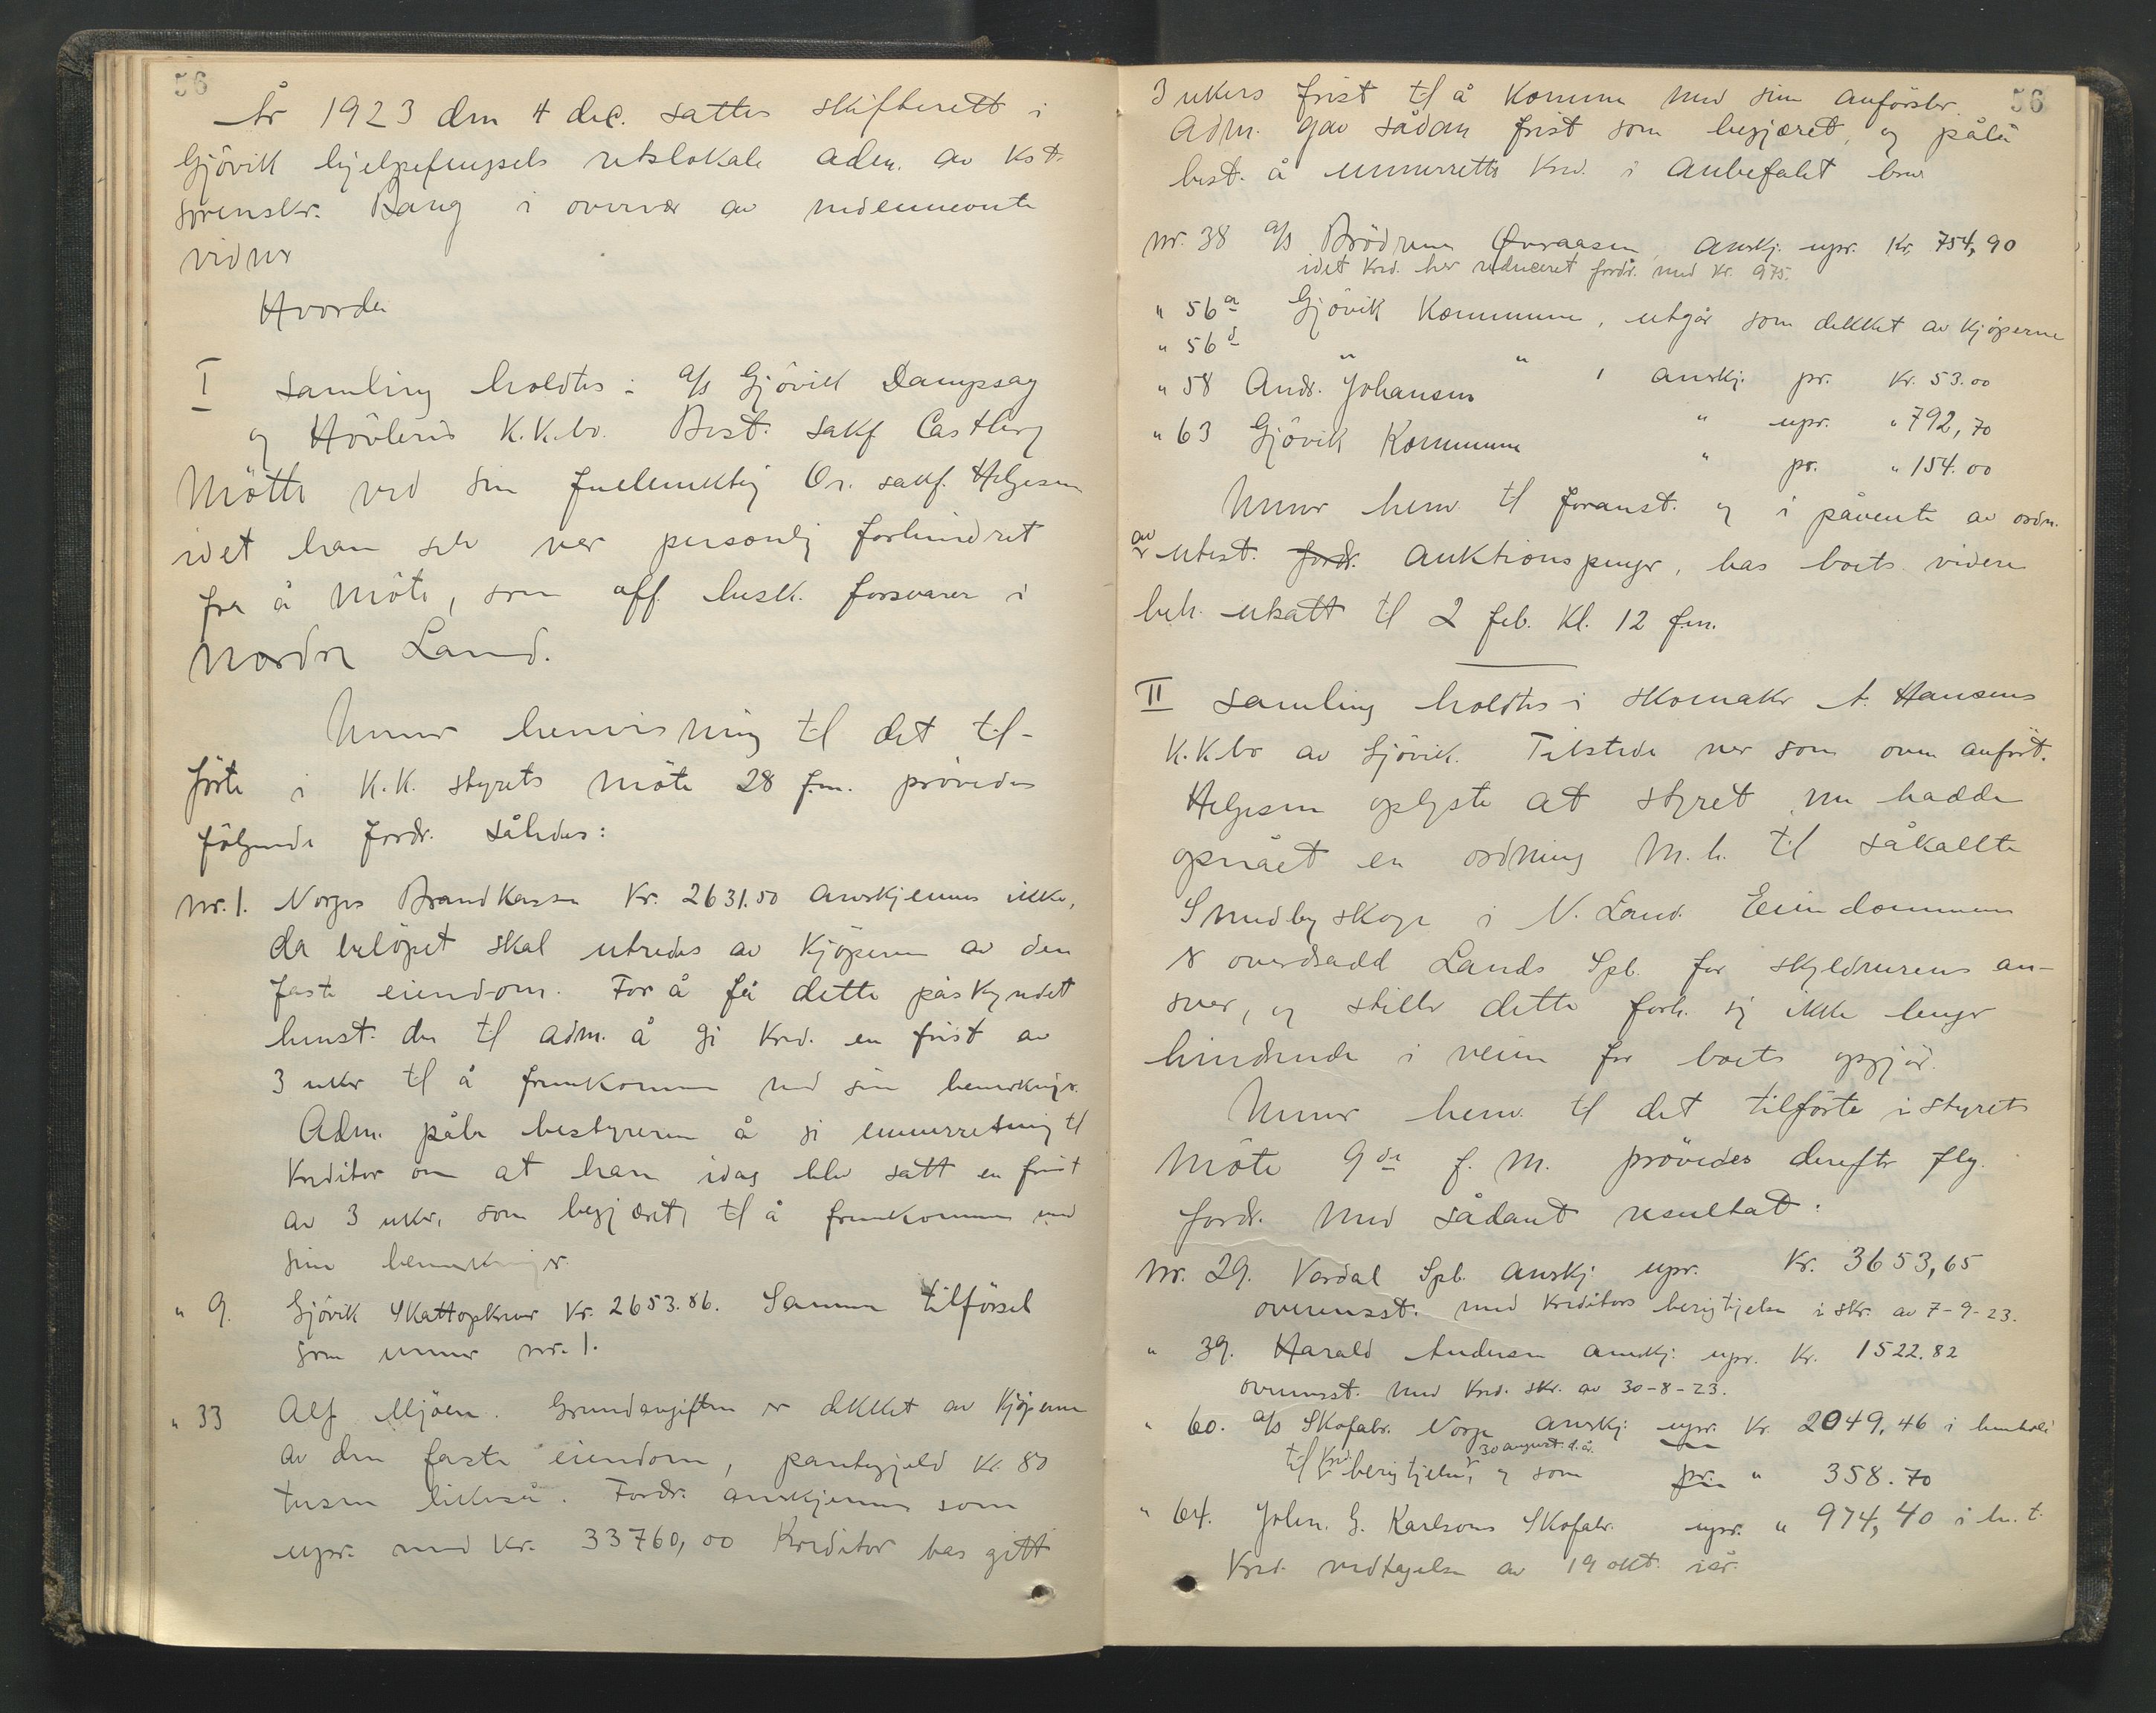 56
År 1923 den 4 dec. sattes skifterett i
Gjövik hjelpefengsels retslokale adm. av kst.
sorenskr. Bang i overvær av nedennevnte
vidner
Hvorda
I samling holdtes i a/s Gjövik Dampsag
og Hövleris K.K.bo. Best. sakf. Castberg
mötte ved sin fuldmektig Or. sakf. Helgesen
idet han selv var personlig forhindret
fra å möte, som off. besk. forsvarer i
Nordre Land.
Under henvisning til det til-
förte i K.K. styrets möte 28 f.m. prövedes
fölgende fordr. således:
Nr. 1. Norges Brandkasse Kr. 2631.50 anerkjennes ikke,
da belöpet skal utredes av kjöperen av den
faste eiendom. For å få dette påskyndet
henst. der til adm. å gi kred. en frist av
3 uker til å fremkomme med sin bemerkninger.
Adm. påla bestyreren å gi underretning til
Kreditor om at han idag blev satt en frist
av 3 uker, som begjæret, til å fremkomme med
sine bemerkninger.
" 9. Gjövik Skattopkrever Kr. 2653.86. Samme tilförsel
som under nr. 1.
" 33 Alf Mjöen. Grundavgiften er dekket av kjöperne
av den faste eiendom, pantegjeld kr. 80
tusen likeså. Fordr. anerkjennes som
upr. med kr. 33760,00 Kreditor bes gitt
56
3 ukers frist til å komme med sine anförsler.
Adm. gav sådan frist som begjæret, og påla
best. å underrette kred. i anbefalet brev
Nr. 38 a/s Brödrene Øveraasen, anerkj. upr. Kr. 754,90
idet kred. har reduceret fordr. med kr. 975.
" 56 a Gjövik Kommune, utgår som dekket av kjöperne
" 56 d " " , anerkj. pr. Kr. 53.00
" 58 Andr. Johansen " upr. " 792,70
" 63 Gjövik Kommune " pr. " 154.00
Under henv. til foranst. og i påvente av ordn.
av utest. fordr. auktionspenger, bes boets videre
beh. utsatt til 2 feb. Kl. 12 f.m.
II samling holdtes i skomaker A. Hansens
K.K.bo av Gjövik. Tilstede var som oven anfört.
Helgesen oplyste at styret nu hadde
opnået en ordning m.h. til såkallte
Smedbyskoge i N. Land. Eiendommen
er overdradd Lands Spb. for skyldnerens an-
svar, og stiller dette forh. sig ikke lenger
hindrende i veien for boets opgjör.
Under henv. til det tilförte i styrets
möte 9 de f. m. prövedes derefter flg.
fordr. med sådant resultat:
Nr. 29. Vardal Spb. anerkj. upr. Kr. 3653,65
overensst. med kreditors berigtigelse i skr. av 7-9-23.
" 39. Harald Andersen anerkj. upr. Kr. 1522.82
overensst. med kred. skr. av 30-8-23.
" 60. a/s Skofabr. Norge anerkj. upr. Kr. 2049,46 i henhold
til kred. berigtigelse, 30 august d. år. og som pr. " 358.70
" 64. John. G. Karlsens Skofabr. upr. " 974,40 i h. t.
Kred. vedtagelse av 19 okt. iår.